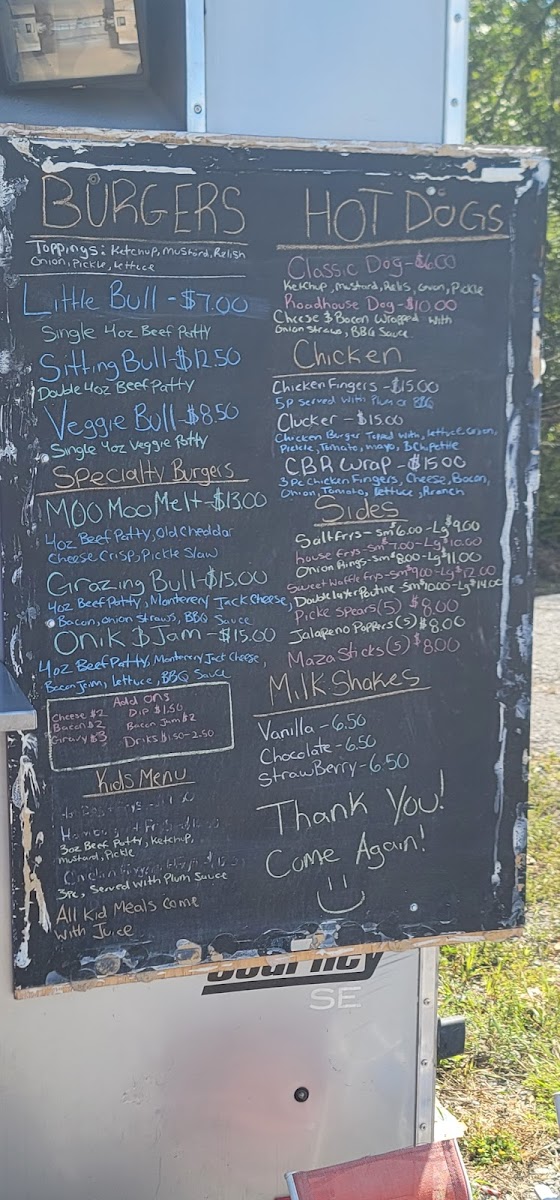 BURGERS
Toppings: Ketchup, Mustard, Relish
Onion, Pickle, Lettuce
Little Bull - $7.00
Single 4oz Beef Patty
Sitting Bull - $12.50
Double 4oz Beef Patty
Veggie Bull - $8.50
Single 4oz Veggie Patty
Specialty Burgers
MOO Moo Melt - $13.00
4oz Beef Patty, Old Cheddar
Cheese Crisp, Pickle Slaw
Grazing Bull - $15.00
4oz Beef Patty, Monterery Jack Cheese,
Bacon, onion Straws, BBQ Sauce
Onik B Jam - $15.00
4oz Beef Patty, Monterery Jack Cheese,
Bacon Jam, Lettuce, BBQ Sauce
Add ons
Cheese $2 Dip $1.50
Bacon $2 Bacon Jam $2
Gravy $3 Driks $1.50-2.50
Kids Menu
3oz Beef Patty, Ketchup,
Mustard, Pickle
3pc, Served With Plum Sauce
All Kid Meals Come
with Juice
HOT DOGS
Classic Dog - $6.00
Ketchup, Mustard, Relis, Onion, Pickle
Roadhouse Dog - $10.00
Cheese & Bacon Wrapped with
Onion Straws, BBQ Sauce
Chicken
Chicken Fingers - $15.00
5p Served With Plum or BBQ
Clucker - $15.00
Chicken Burger Toped with, Lettuce, Onion,
Pickle, Tomato, mayo,
CBR Wrap - $15.00
3 Pc Chicken Fingers, Cheese, Bacon,
Onion, Tomato, Lettuce, Rranch
Sides
Salt Frys - Sm $6.00 - Lg $9.00
house Frys - Sm $7.00 - Lg $10.00
Onion Rings - Sm $8.00 - Lg $11.00
Sweet Waffle Frys - Sm $9.00 - Lg $12.00
Double layer Poutine - Sm $10.00 - Lg $14.00
Picke Spears (5) $8.00
Jalapeno Poppers (5) $8.00
Maza Sticks (5) $8.00
Milk Shakes
Vanilla - 6.50
Chocolate - 6.50
StrawBerry - 6.50
Thank You!
Come Again!
SE